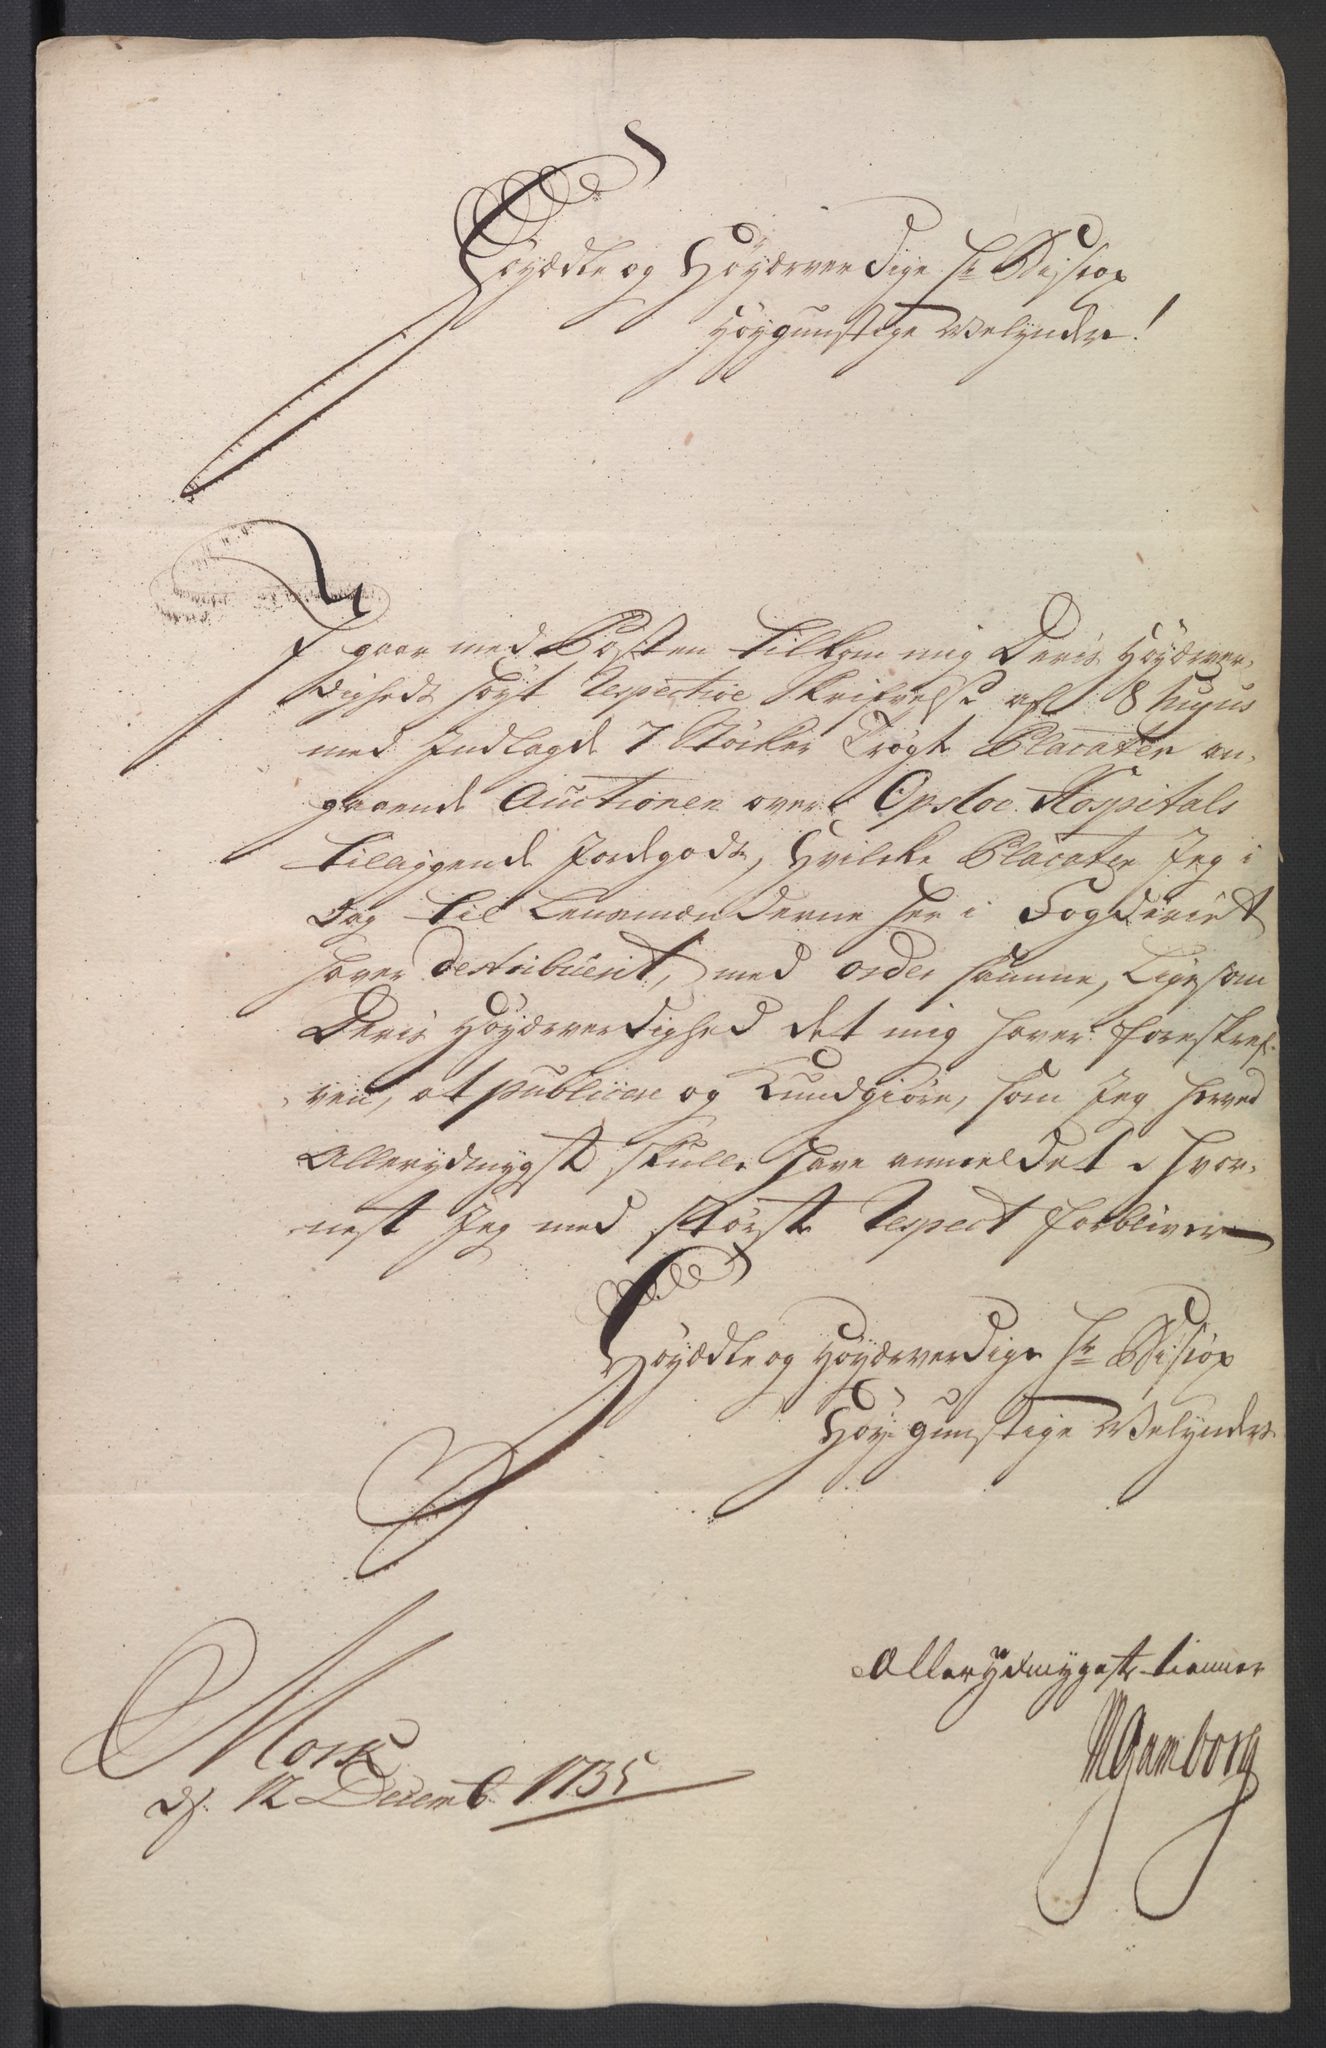 Høyædle og Høyærverdige Hr Biscop
Høygunstige Velynder!
I gaar med Posten tilkom mig Deris Høyærver-
digheds høyt respective Skrifvelse af 8 hujus
med Indlagde 7 Støcker Trøgt Placater an-
gaaende Auctionen over Opsloe Hospitals
tilliggende Jordegods, Hvilcke Placater Jeg i
Dag til Lensmændene her i Fogderiet
haver destribuerit, med order samme, Ligesom
Deris Høyærverdighed det mig haver foreskref-
ven, at publicere og Kundgiøre, som Jeg herved
Allerydmygst skulle have anmeldet, hvor-
nest Jeg med største Respect forbliver
Høyædle og Høyærverdige Hr Biscop
Høygunstige Velynders
Allerydmygste tienner
MGamborg
Mork
d. 12 Decemb 1735